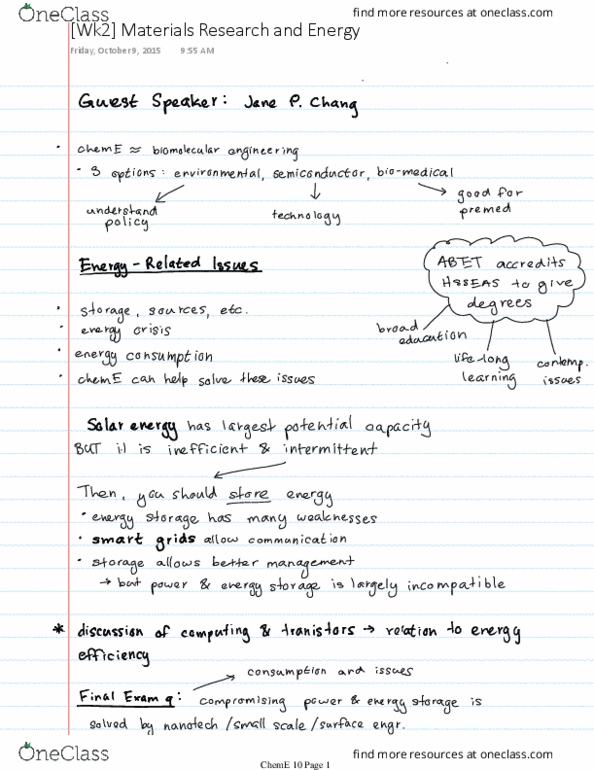 OneClass
find more resources at oneclass.com
[Wk2] Materials Research and Energy
Friday, October 9, 2015 9:55 AM
Guest Speaker: Jane P. Chang
• chemE ≈ biomolecular engineering
• 3 options: environmental, semiconductor, bio-medical
understand policy
technology
good for premed
Energy-Related Issues
ABET accredits
HSSEAS to give
degrees
broad education
life-long learning
contemp. issues
• storage, sources, etc.
• energy crisis
• energy consumption
• chemE can help solve these issues
Solar energy has largest potential capacity
BUT it is inefficient & intermittent
Then, you should store energy
• energy storage has many weaknesses
• smart grids allow communication
• storage allows better management
→ but power & energy storage is largely incompatible
* discussion of computing & tranistors → relation to energy
efficiency
consumption and issues
Final Exam q: compromising power & energy storage is
solved by nanotech/small scale/surface engr.
OneClass
find more resources at oneclass.com
ChemE 10 Page 1